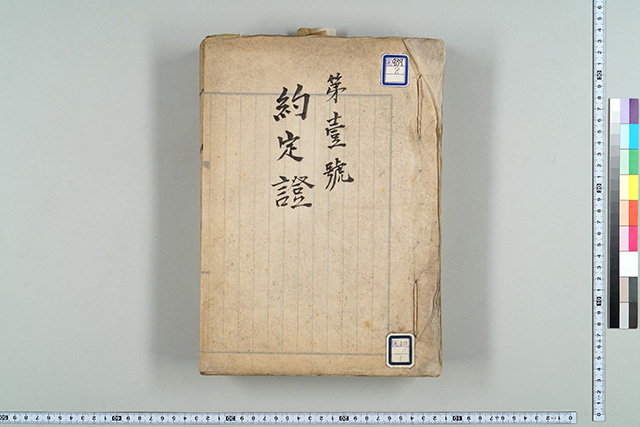 第壹號
約定證